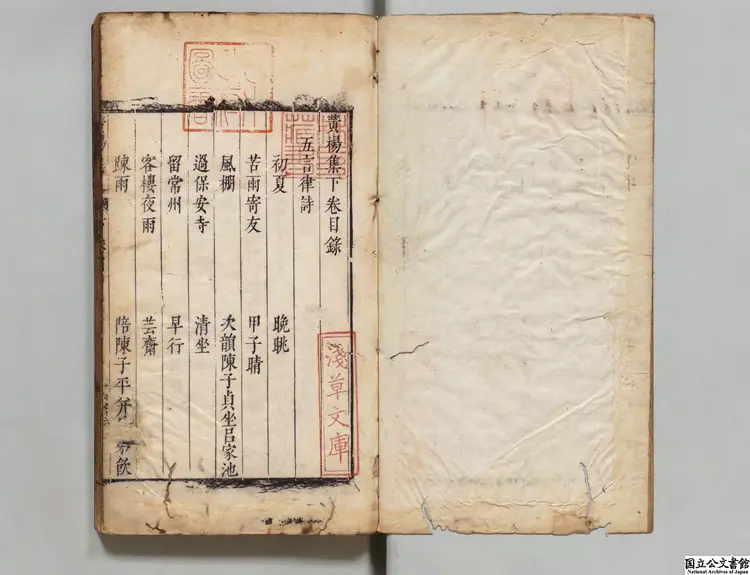 黄楊集下卷目錄
五言律詩
初夏
晚眺
苦雨寄友
甲子晴
風棚
次韻陳子貞坐呂家池
過保安寺
清坐
留常州
早行
客樓夜雨
芸齋
疎雨
陪陳子平弈 飲
淺草文庫
国立公文書館
National Archives of Japan